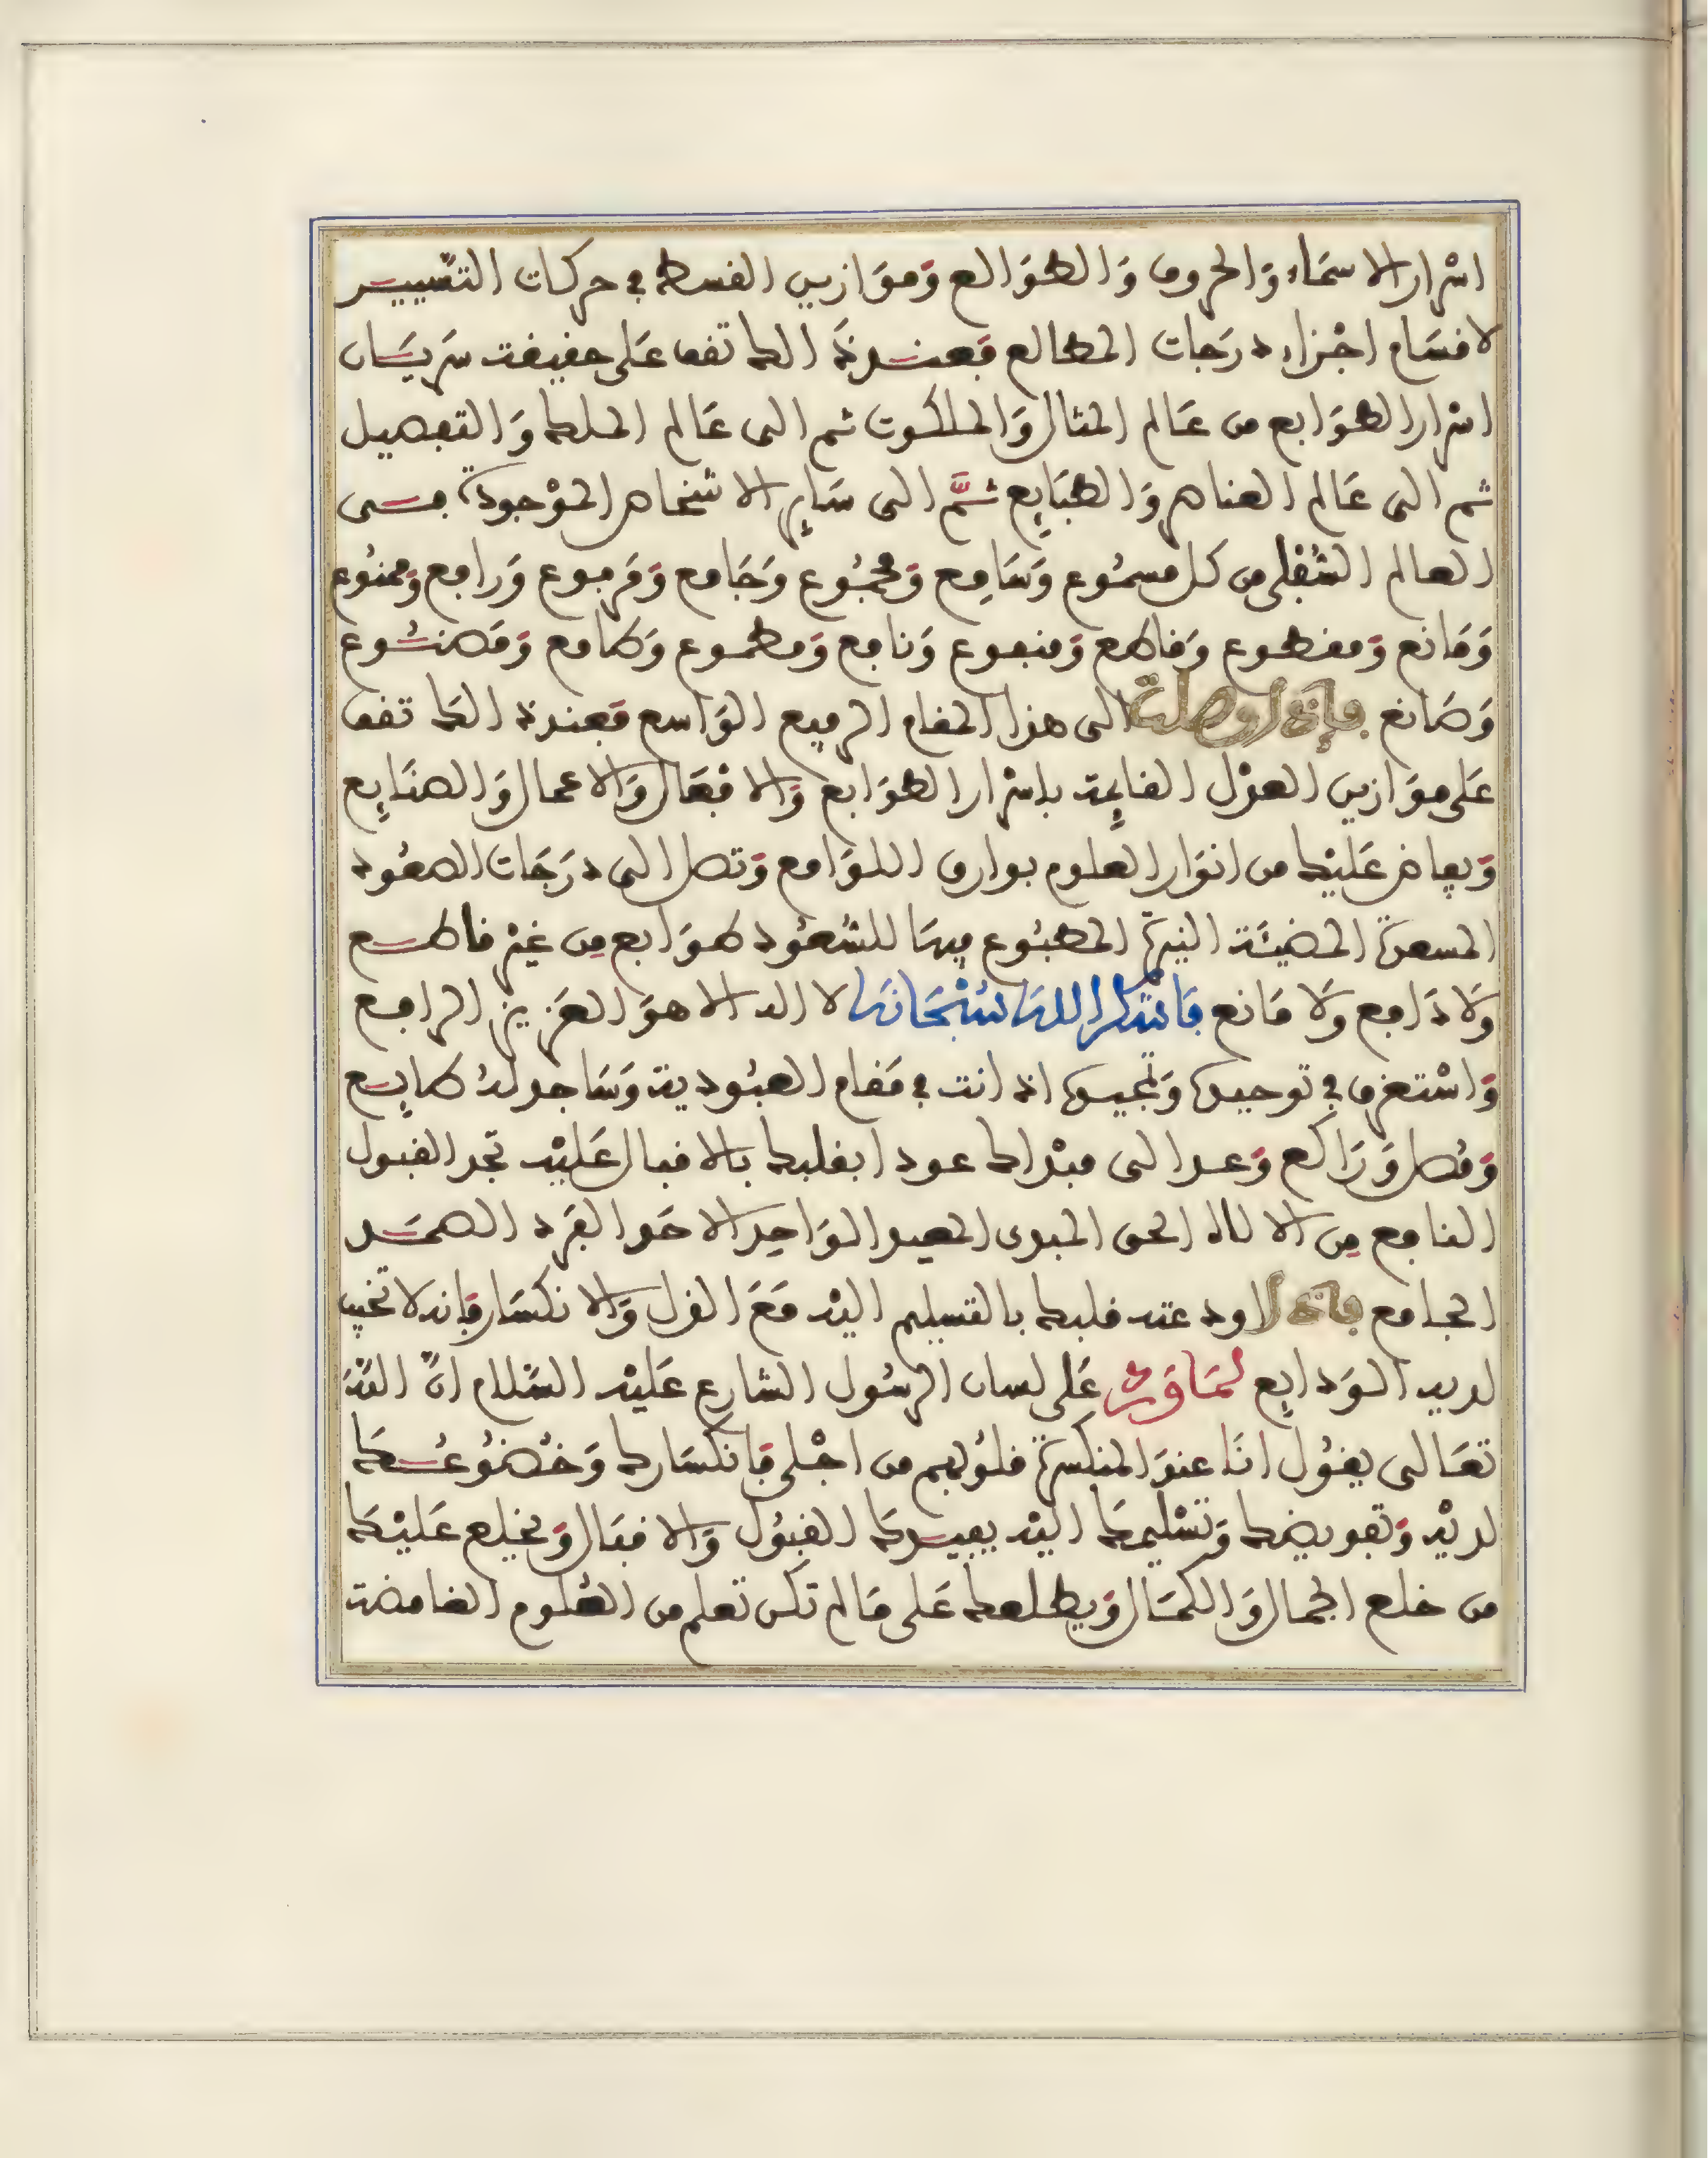 اسْرار الاسمَاء وَالحروف وَالطوَالع وَموَازين القسط في حركات التسْييــر
لاقسَام اجْزاء درَجات المطالع فعنــد ذَلك تقف عَلى حقيقة سريَــان
اسْرار الطوَابع من عَالم المثال وَالملكوت ثم الى عَالم الملك وَالتفصيل
ثم الى عَالم العناصر وَالطبَايِع ثمَّ الى سَايِر الاشخاص الموْجودة فــى
العالم السُفْلى من كل مسمُوع وَسَامِع وَمجمُوع وَجَامع وَمَرفوع وَرافع وَممنُوع
وَمَانع وَمقطوع وَقاطع وَمنفوع وَنافع وَمطموع وَطامع وَمَصنــُوع
وَصَانع فإذا وصلت الى هذا المقام الرفيع الوَاسع فعند ذلك تقف
عَلى موَازين العدْل القايِمة باسْرار الطوَابع وَالافْعَال وَالاعمال وَالصنَايِع
وَيفاض عَليْك من انوَار العلوم بوارق اللوَامع وَتصل الى درَجَات الصعُود
المسعدة المضيئَة النيرة المطبُوع فيهَا للسُعُود طوَابع مِن غيْر قاطــع
وَلا دَافع وَلا مَانع فَاشْكر اللهَ سُبْحَانَه لا اله الا هوَ العَزيز الرافع
وَاسْتغرق في توحيده وَتمجيده اذ انت في مَقام العبُودية وَسَاجد لهُ طايــع
وَمُصل وَرَاكع وَعــد الى مبْدائك عودا بقلبك بالاقبال عَليْه تجد القبول
النافع مِن الالاه الحق المبدى المعيد الوَاحِد الاحَد الفرْد الصمَــد
الجامع فإذا اودعته قلبك بالتسليم اليْه مَعَ الذل وَالانكسَار فإنه لا تخيب
لديه الوَدايِع لمَا وَرد عَلى لسان الرسُول الشارع عَليْه السَّلام انَّ اللهَ
تعَالى يقُول انَا عندَ المنكسرة قلوُبهم من اجْلى فَانكسَارك وَخُضُوعُــكَ
لديْه وَتفويضك وَتسْليمكَ اليْه يفيــدكَ القبُول وَالاقبَال وَيخلع عَليْكَ
من خلع الجمال وَالكمَال وَيطلعك عَلى مَا لم تكن تعلم من العُلوم الغامضة